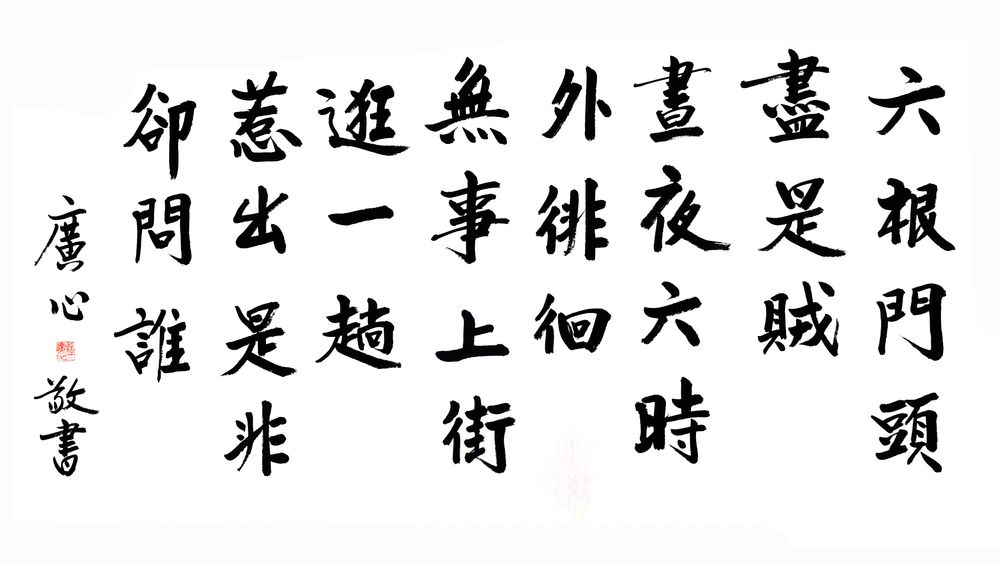 六根門頭
盡是賊
晝夜六時
外徘徊
無事上街
逛一趟
惹出是非
卻問誰
廣心
敬書